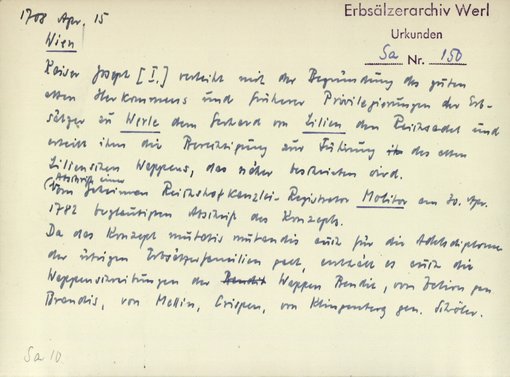 1708 Apr. 15
Erbsälzerarchiv Werl
Urkunden
Sa Nr. 150
Wien
Kaiser Joseph [I.] verleiht mit der Begründung des guten
alten Herkommens und früherer Privilegierungen der Erb-
sälzer zu Werle dem Gerhard von Lilien den Reichsadel und
erteilt ihm die Berechtigung zur Führung des alten
Lilienschen Wappens, das näher beschrieben wird.
Abschrift einer
(vom Geheimen Reichshofkanzlei-Registrator Molitor am 30. Apr.
1782 beglaubigten Abschrift des Konzepts.
Da das Konzept mutatis mutandis auch für die Adelsdiplome
der übrigen Erbsälzerfamilien galt, enthält es auch die
Wappenbeschreibungen der Wappen Bendit, von Zelion gen
Brandis, von Mellin, Crispen, von Klingenberg gen. Schöler.
Sa 10